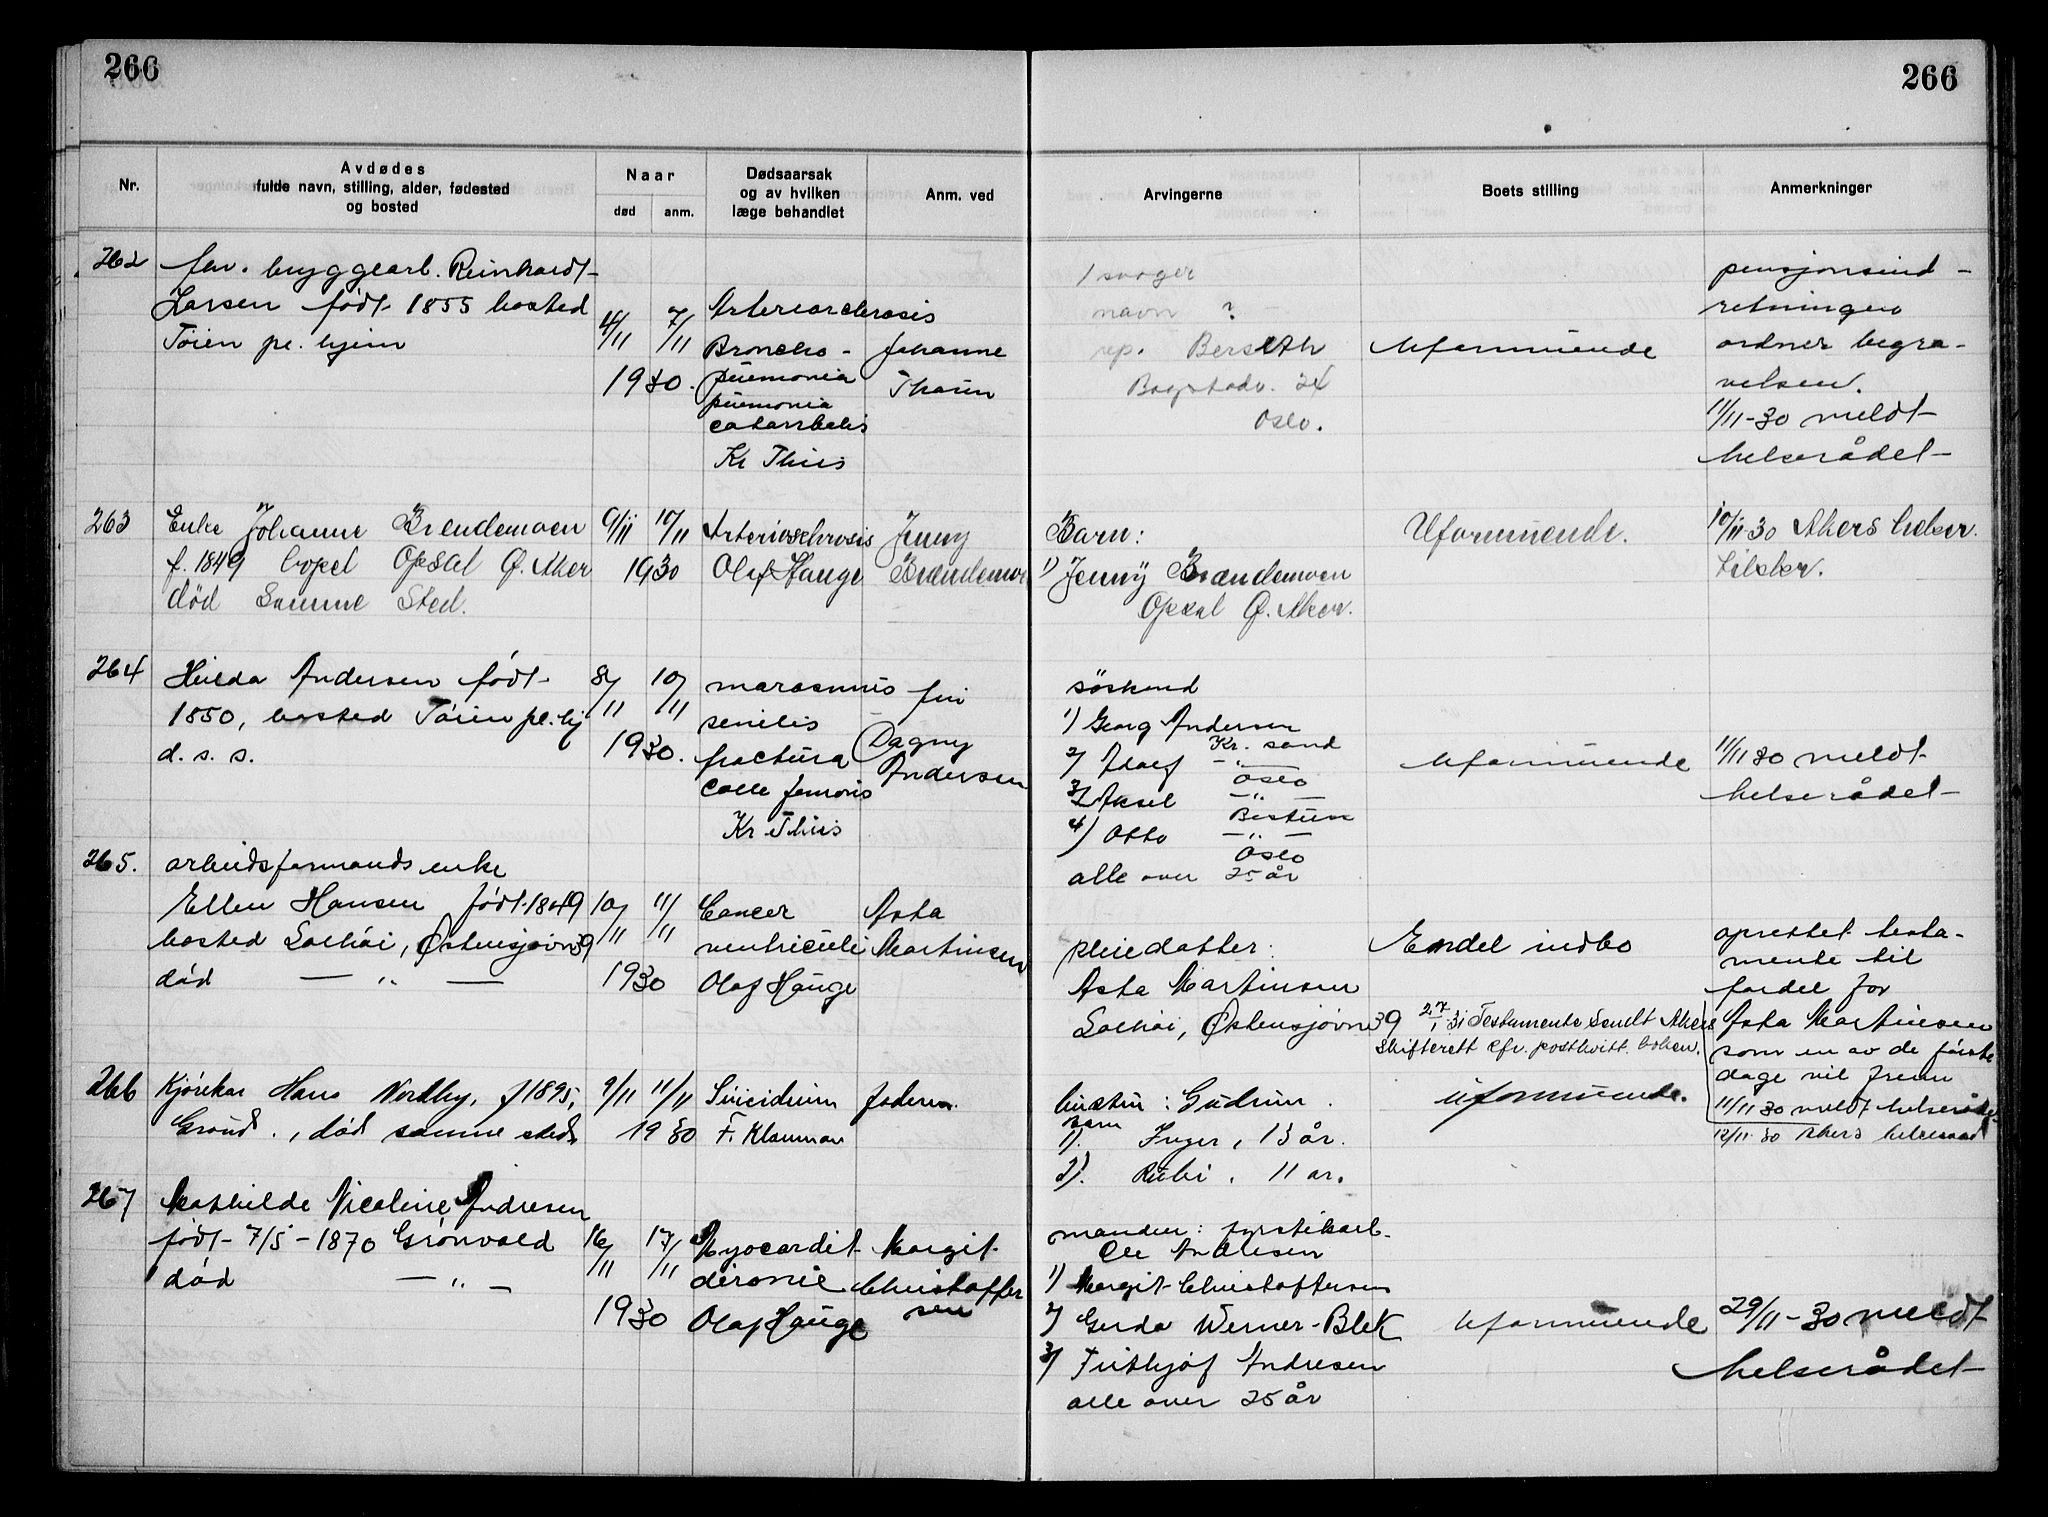 266
266
Nr.
Avdødes
fulde navn, stilling, alder, fødested
og bosted
Naar
død
anm.
Dødsaarsak
og av hvilken
læge behandlet
Anm. ved
Arvingerne
Boets stilling
Anmerkninger
262
fhv. bryggearb. Reinhardt
Larsen født 1855 bosted
Töien pl. hjem
4/11 7/11
1930.
Arteriosclerosis
Broncho-
pneumonia
pneumonia
catarrhalis
Kr Thiis
Johanne
1 svoger
navn ?
rep. Berseth
Bogstadv. 24
Oslo.
Uformuende
pensjonsind-
retningen
ordner begra-
velsen.
11/11-30 meldt
helserådet
263
Enke Johanne Brendemoen
f. 1849 bopel Opsal Ø. Aker
död samme sted.
9/11 10/11
1930
Arteriosclerosis
Olaf Hauge
Jenny
Brændemoen
Barn:
1) Jenny Brændemoen
Opsal Ø. Aker.
Uformuende.
10/11-30 Akers helser.
264
Hilda Andersen födt
1850, bosted Töien pl.hj
d. s. s.
8/11 10/11
1930.
marasmus
senilis
fractura
colli femoris
Kr Thiis
frk
Dagny
Andersen
söskend
1) Georg Andersen
Kr. sand
2) Adolf -"-
Oslo
3) Aksel -"-
Bestun
4) Otto -"-
Oslo
alle over 25 år
Uformuende
11/11 30 meldt
helserådet
265.
arbeidsformands enke
Ellen Hansen födt 1849
bosted Solhöi, Østensjövn 39
död -"-
10/11 11/11
1930
Cancer
ventriculi
Olaf Hauge
Asta
Martinsen
pleiedatter:
Asta Martinsen
Solhöi, Østensjövn 39
Endel indbo
27/1 31 Testamente sendt Akers
skifterett cfr. postkvitt. boken.
oprettet testa-
mente til
fordel for
Asta Martinsen
som en av de förste
dage vil frem
11/11 30 meldt helseråde
266
Kjörekar Hans Nordby, f 1895,
Grorud., död samme sted
9/11 11/11
1930
Suicidium
F. Klouman
faderen.
hustru: Gudrun.
barn
1). Inger, 13 år.
2). Rubi, 11 år.
uformuende.
12/11-30 Akers helseraad
267
Mathilde Nicoline Andresen
födt 7/5-1870 Grönvold
död -"-
16/11 17/11
1930
Myocardit
cironic
Olaf Hauge
Margit
Christoffer
sen
manden: fyrstikarb.
Ole Andresen
1) Margit Christoffersen
2) Gerda Werner-Blek
3) Frithjof Andresen
alle over 25 år
Uformuende
29/11-30 meldt
helserådet